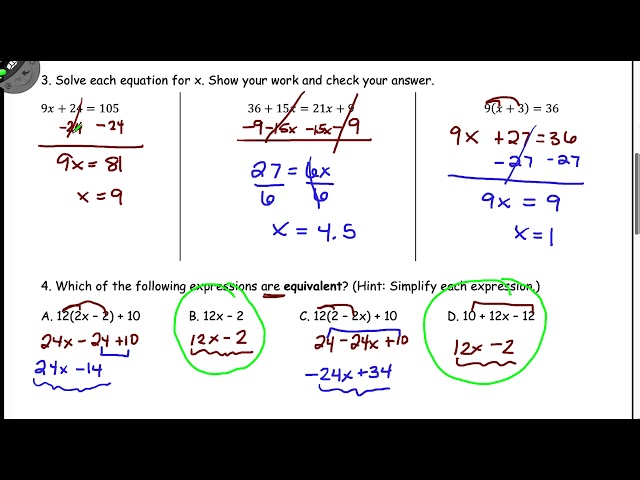 3. Solve each equation for x. Show your work and check your answer.
9x + 24 = 105
-24 -24
9x = 81
x = 9
36 + 15x = 21x + 9
-9 -15x -15x -9
27 = 6x
6 6
x = 4.5
9(x + 3) = 36
9x +27 = 36
-27 -27
9x = 9
x = 1
4. Which of the following expressions are equivalent? (Hint: Simplify each expression.)
A. 12(2x − 2) + 10
24x - 24 + 10
24x - 14
B. 12x − 2
12x - 2
C. 12(2 − 2x) + 10
24 - 24x + 10
-24x + 34
D. 10 + 12x − 12
12x - 2